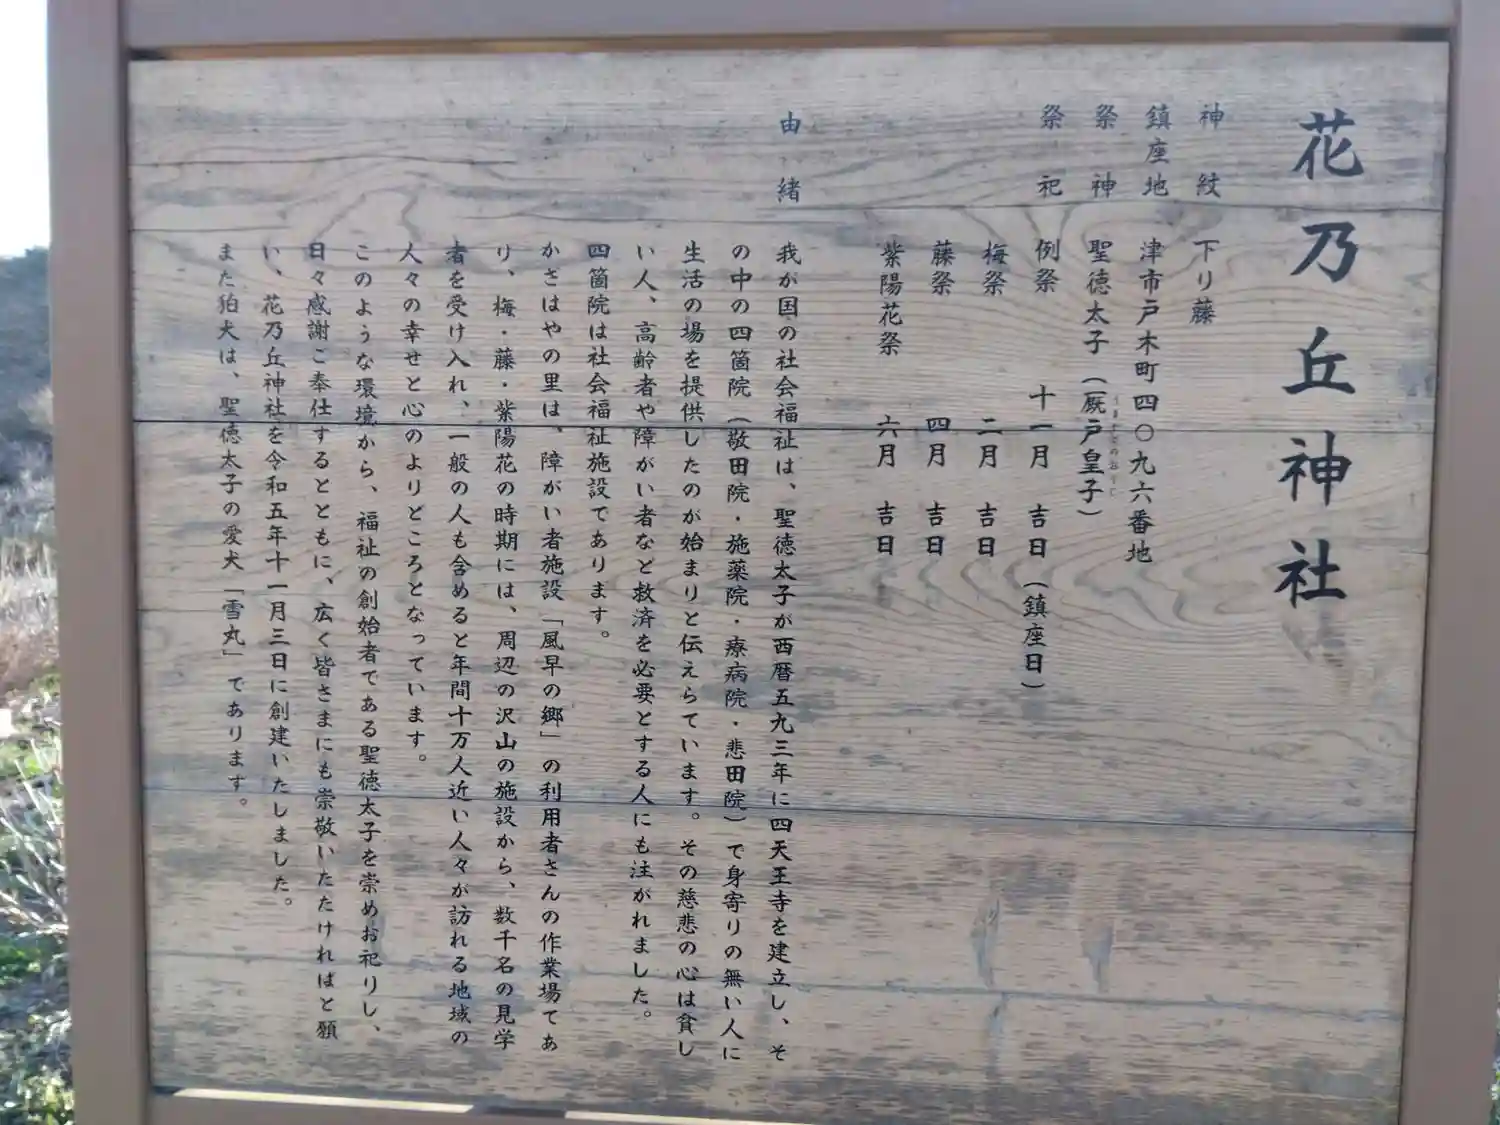 花乃丘神社
神紋 下り藤
鎮座地 津市戸木町四〇九六番地
祭神 聖徳太子（厩戸皇子）
うまやどのおうじ
祭祀 例祭 十一月 吉日（鎮座日）
梅祭 二月 吉日
藤祭 四月 吉日
紫陽花祭 六月 吉日
由緒
我が国の社会福祉は、聖徳太子が西暦五九三年に四天王寺を建立し、そ
の中の四箇院（敬田院・施薬院・療病院・悲田院）で身寄りの無い人に
生活の場を提供したのが始まりと伝えらています。その慈悲の心は貧し
い人、高齢者や障がい者など救済を必要とする人にも注がれました。
四箇院は社会福祉施設であります。
かさはやの里は、障がい者施設「風早の郷」の利用者さんの作業場であ
り、梅・藤・紫陽花の時期には、周辺の沢山の施設から、数千名の見学
者を受け入れ、一般の人も含めると年間十万人近い人々が訪れる地域の
人々の幸せと心のよりどころとなっています。
このような環境から、福祉の創始者である聖徳太子を崇めお祀りし、
日々感謝ご奉仕するとともに、広く皆さまにも崇敬いただければと願
い、花乃丘神社を令和五年十一月三日に創建いたしました。
また狛犬は、聖徳太子の愛犬「雪丸」であります。